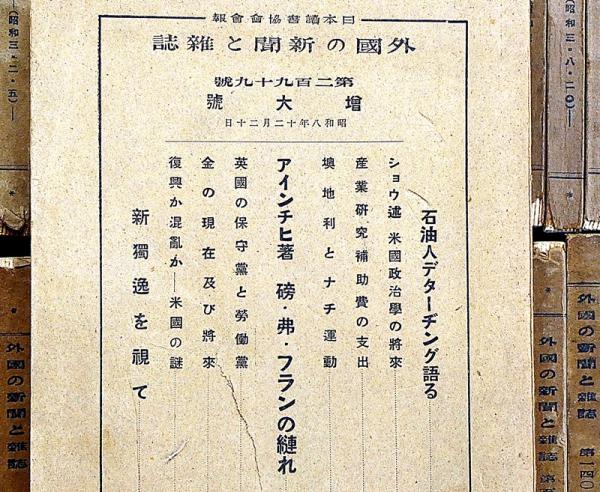 日本讀書協會會報
外國の新聞と雜誌
第二百九十九號
增大號
昭和八年十二月二十日
石油人デターヂング語る
ショウ述 米國政治學の將來
産業硏究補助費の支出
墺地利とナチ運動
アインチヒ著 磅・弗・フランの縺れ
英國の保守黨と勞働黨
金の現在及び將來
復興か混亂か—米國の謎
新獨逸を視て
(昭和三・八・二〇)—
(昭和三・二・五)—
外國の新聞と雜誌 第一四〇
外國の新聞と雜誌 第
外國の新聞と雜誌